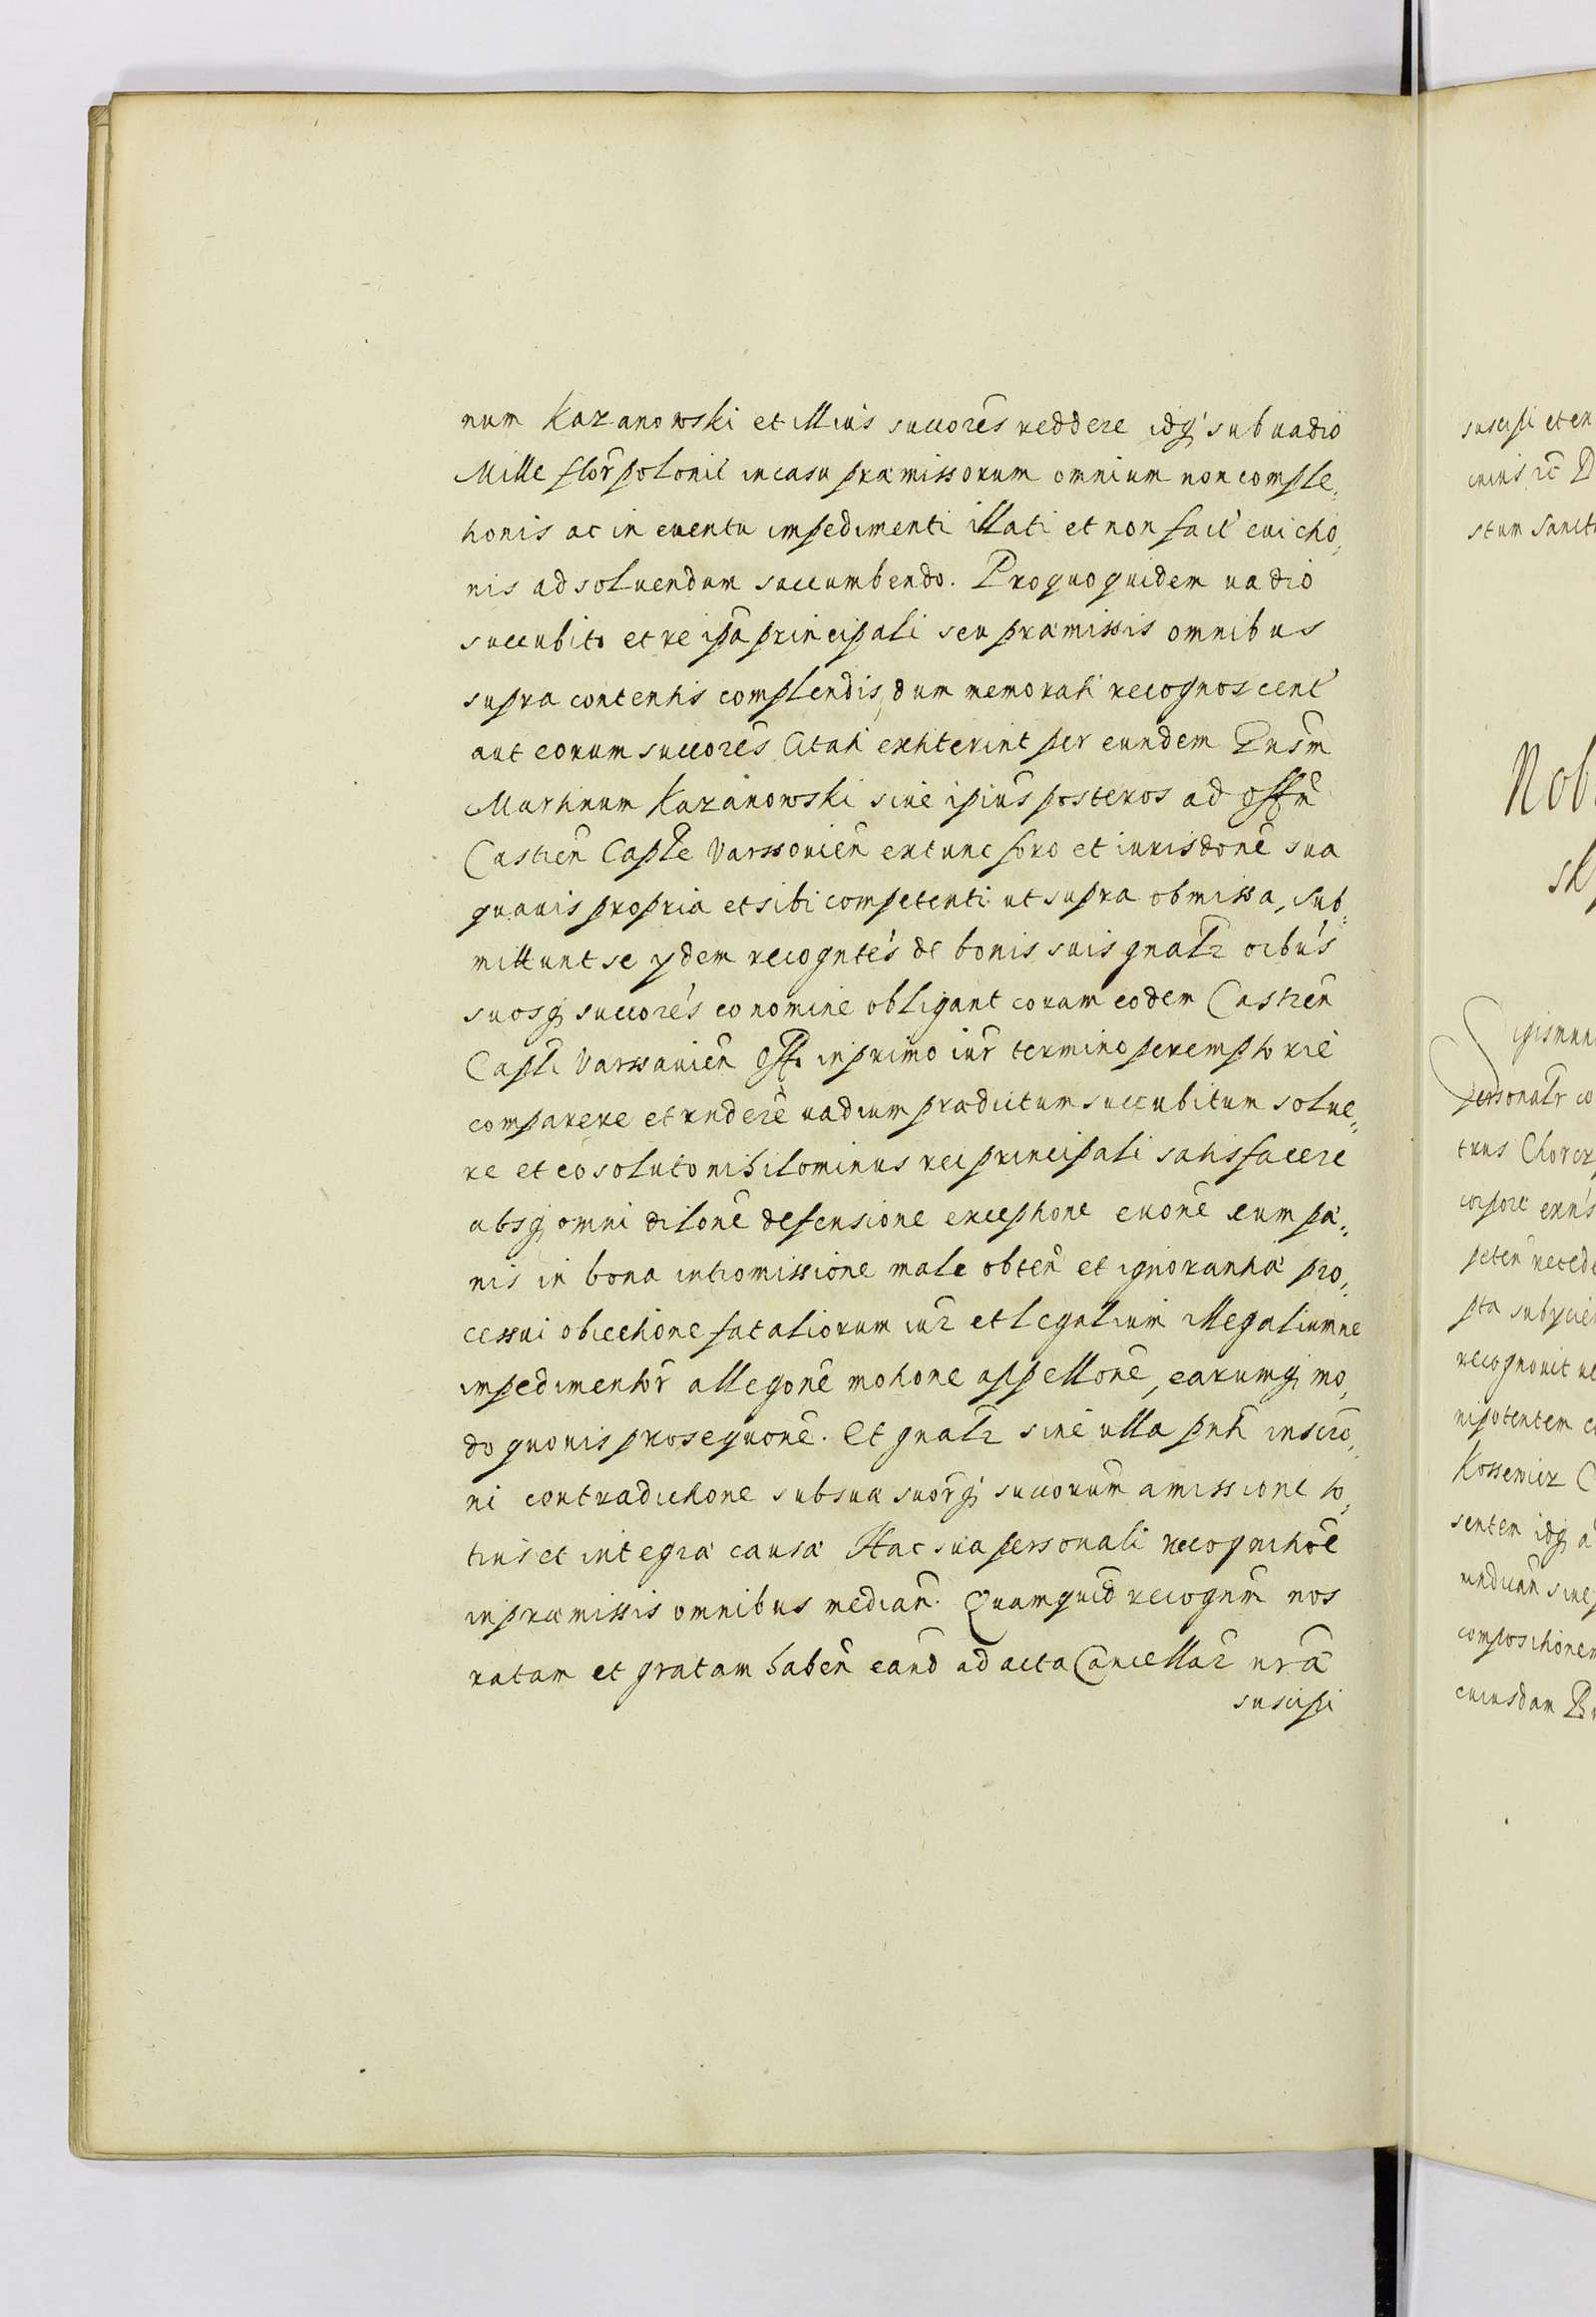 num Kazanowski et illius succores reddere idq sub vadio
Mille flor polonic in casu præmissorum omnium non comple,
tionis ac in euentu impedimenti illati et non fact euictio,
nis ad soluendum succumbendo. Pro quo quidem vadio
succubito et re ipa principali seu præmissis omnibus
supra contentis complendis, dum memorati recognoscent
aut eorum succores Citati extiterint per eundem Gnsm
Martinum Kazanowski siue ipius posteros ad offm
Castren Caple Varssouien extunc foro et iurisdone sua
quauis propria et sibi competenti ut supra obmissa, sub,
mittunt se ydem recogntes de bonis suis gnalr oibus
suosq succores eo nomine obligant coram eodem Castren
Capli Varssauien Offo in primo iur termino peremptorie
comparere et rndere vadium prædictum succubitum solue,,
re et eo soluto nihilominus rei principali satisfacere
absq omni dilone defensione exceptione euone eum pa,,
nis in bona intromissione male obten et ignorantia pro,,
cessui obiectione fataliorum iur et legalium illegaliumue
impedimentor allegone motione appellone, earumq mo,
do quouis prosequone. Et gnalr sine ulla pnti inscrō,
ni contradictione sub sua suorq succorum amissione to,
tius et integra causa Hac sua personali recognitioe
in præmissis omnibus median. Quam quid recognm nos
ratam et gratam haben eand ad acta Cancellar nra
suscipi
suscipi et en
cuius rc
stum Sanct
Nob
Sigismun
personalr co
trus
corpore
peten recede
pta subycien
recognouit
nipotentem
Kossewicz
sentem idq a
compositionem
cuiusdam